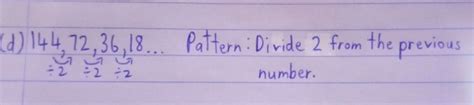 (d) 144, 72, 36, 18... Pattern: Divide 2 from the previous
÷2 ÷2 ÷2 number.